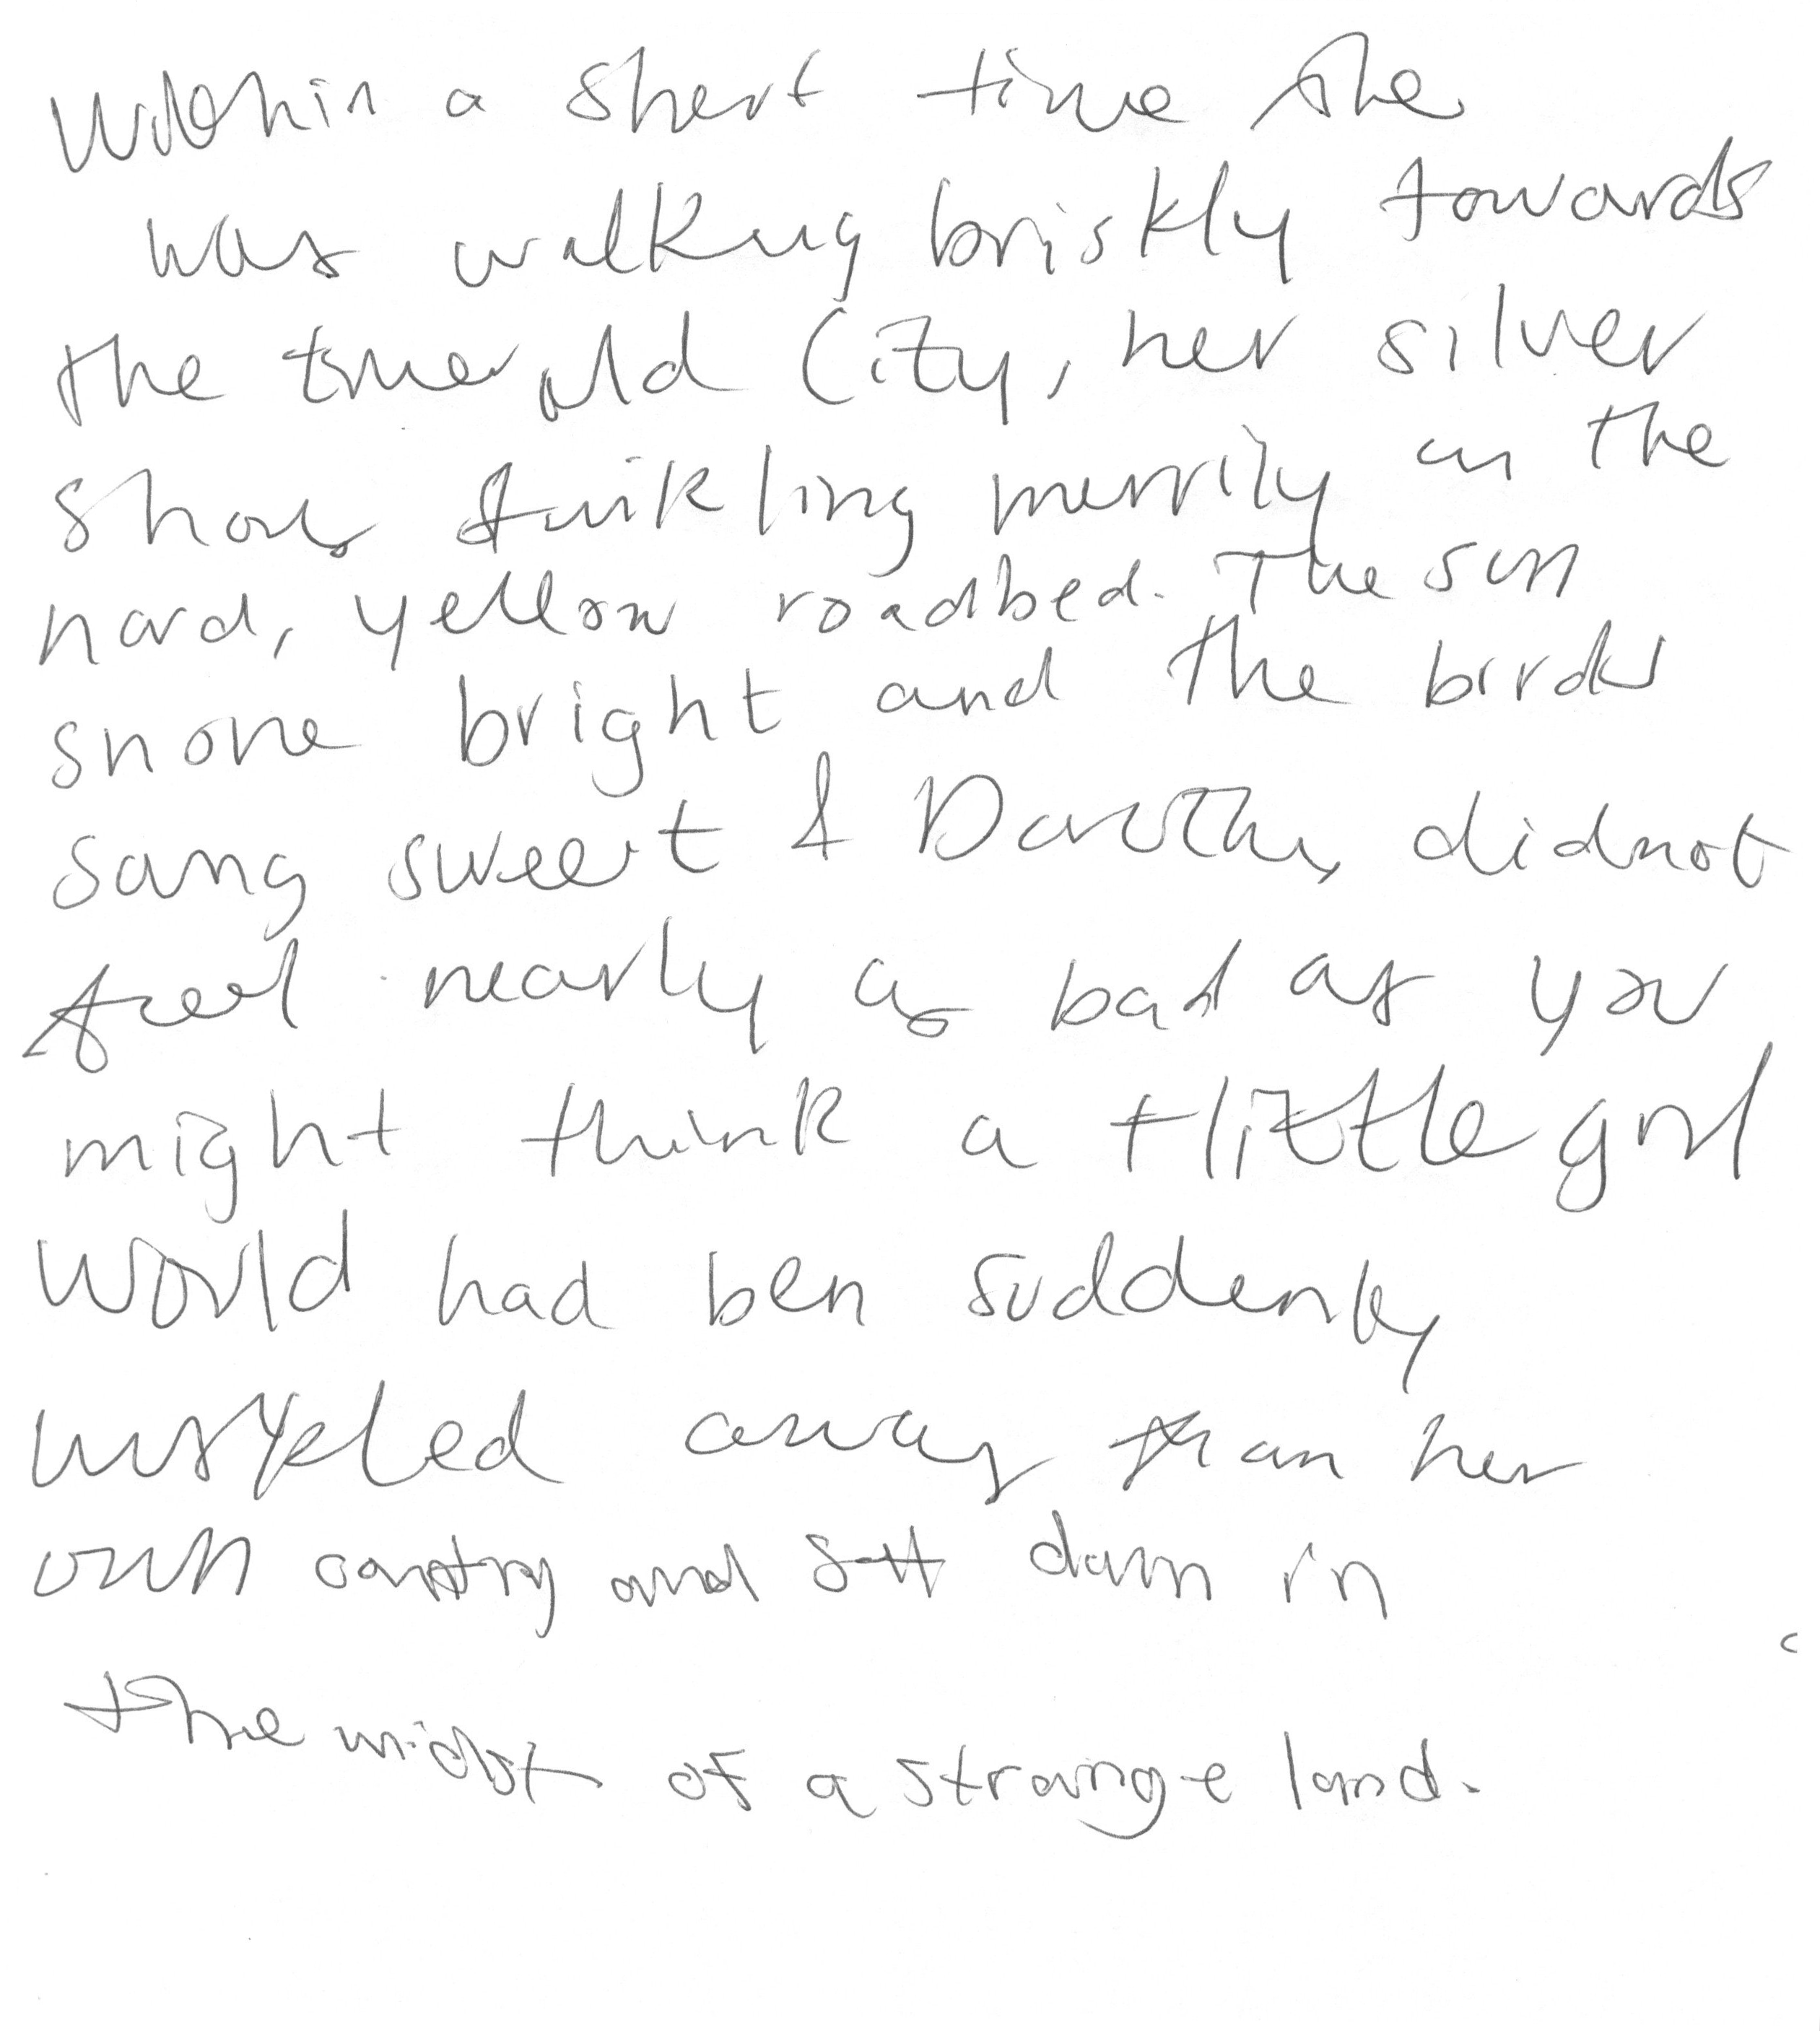 Within a short time she
was walking briskly towards
the Emerald City, her silver
shoes tinkling merrily on the
hard, yellow roadbed. The sun
shone bright and the birds
sang sweet & Dorothy did not
feel nearly as bad as you
might think a little girl
would had ben suddenly
away than her
own country and sett down in
the midst of a strange land.